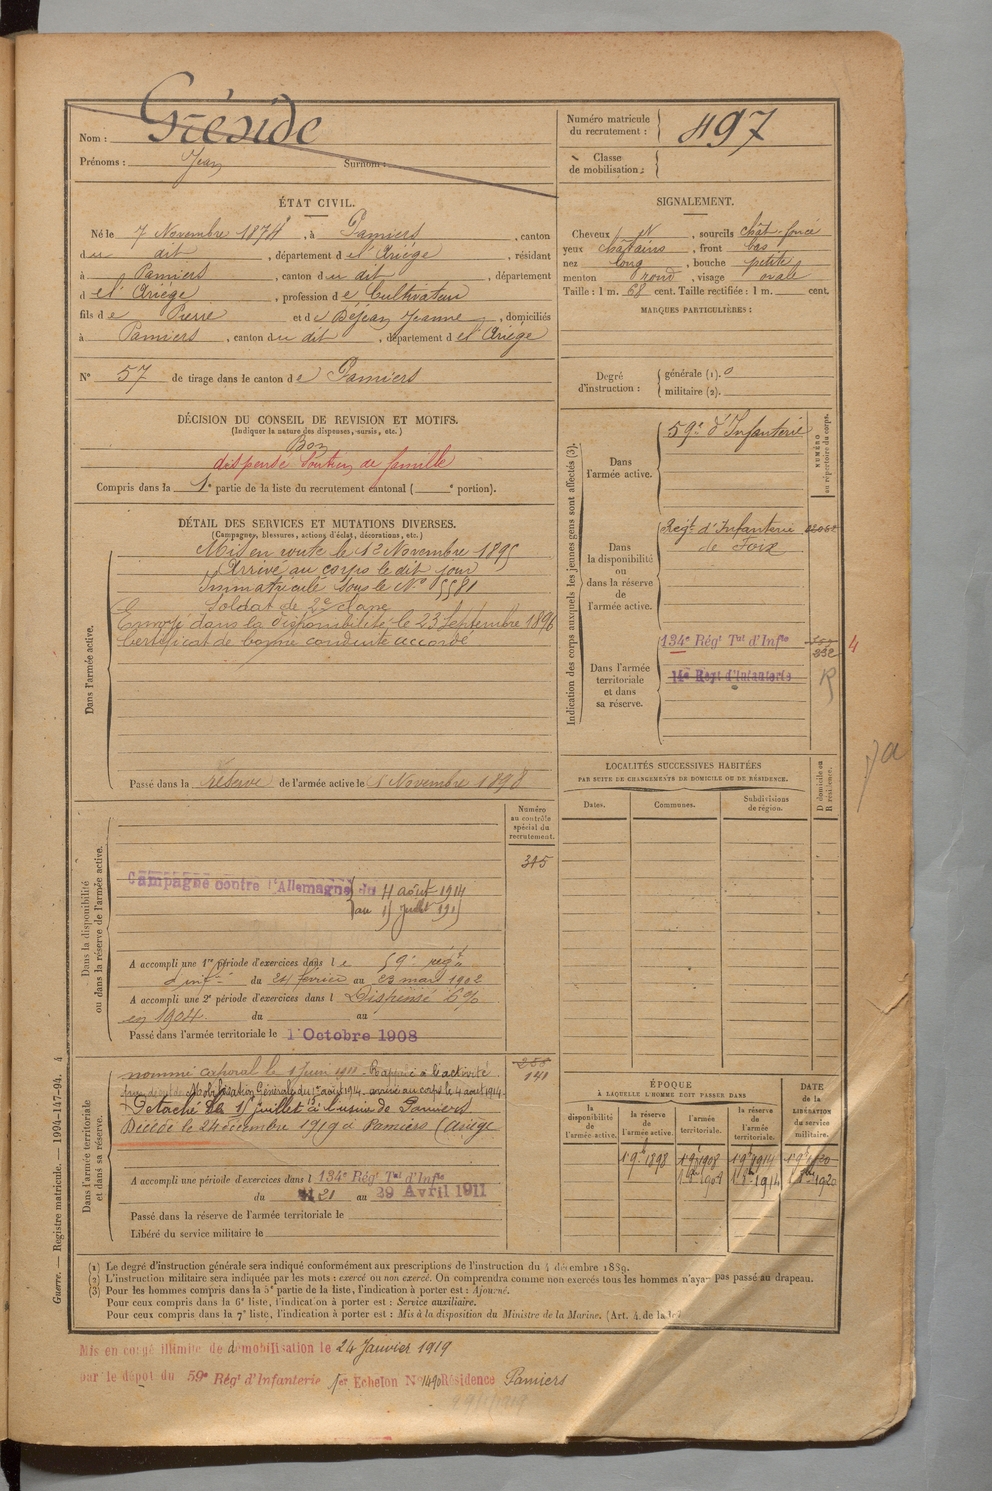 Nom : Gréside
Prénoms : Jean Surnom :
Numéro matricule du recrutement : 497
Classe de mobilisation :
ÉTAT CIVIL.
Né le 7 Novembre 1874, à Pamiers, canton
du dit, département de l'Ariège, résidant
à Pamiers, canton du dit, département
de l'Ariège, profession de Cultivateur
fils de Pierre et de Déjean Jeanne, domiciliés
à Pamiers, canton du dit, département de l'Ariège
N° 57 de tirage dans le canton de Pamiers
SIGNALEMENT.
Cheveux N, sourcils chât. foncé
yeux châtains, front bas
nez long, bouche petite
menton rond, visage ovale
Taille : 1 m. 68 cent. Taille rectifiée : 1 m. cent.
MARQUES PARTICULIÈRES :
Degré d'instruction : générale (1). 0
militaire (2).
DÉCISION DU CONSEIL DE REVISION ET MOTIFS.
(Indiquer la nature des dispenses, sursis, etc.)
Bon
dispensé Soutien de famille
Compris dans la 1e partie de la liste du recrutement cantonal ( e portion).
DÉTAIL DES SERVICES ET MUTATIONS DIVERSES.
(Campagnes, blessures, actions d'éclat, décorations, etc.)
Dans l'armée active.
Mis en route le 12 Novembre 1895
Arrivé au corps le dit jour
Immatriculé sous le N° 5581
Soldat de 2e classe
Envoyé dans la disponibilité le 23 Septembre 1896
Certificat de bonne conduite accordé
Passé dans la réserve de l'armée active le 1 Novembre 1898
Indication des corps auxquels les jeunes gens sont affectés (3).
NUMÉRO au répertoire du corps.
Dans l'armée active.
59e d'Infanterie
Dans la disponibilité ou dans la réserve de l'armée active.
Régt d'Infanterie
de Foix
Dans l'armée territoriale et dans sa réserve.
134e Régt Tal d'Infie
332
4
14e Regt d'Infanterie
R
LOCALITÉS SUCCESSIVES HABITÉES
PAR SUITE DE CHANGEMENTS DE DOMICILE OU DE RÉSIDENCE.
Dates. Communes. Subdivisions de région.
D domicile ou R résidence.
Dans la disponibilité ou dans la réserve de l'armée active.
Numéro au contrôle spécial du recrutement.
315
Campagne contre l'Allemagne du 4 août 1914
au 15 Juillet 1915
A accompli une 1re période d'exercices dans le 59e régt
d'inf. du 24 février au 23 mars 1902
A accompli une 2e période d'exercices dans l Dispensé 6%
en 1904. du au
Passé dans l'armée territoriale le 1 Octobre 1908
Dans l'armée territoriale et dans sa réserve.
141
nommé caporal le 1 Juin 1911. Rappelé à l'activité
Mobilisation Générale du 1er août 1914. arrivé au corps le 4 août 1914
Détaché le 15 juillet à l'usine de Pamiers
Décédé le 24 décembre 1919 à Pamiers (Ariège
A accompli une période d'exercices dans l 134e Régt Tal d'Infie
du 21 au 29 Avril 1911
Passé dans la réserve de l'armée territoriale le
Libéré du service militaire le
ÉPOQUE
A LAQUELLE L'HOMME DOIT PASSER DANS
la disponibilité de l'armée active. la réserve de l'armée active. l'armée territoriale. la réserve de l'armée territoriale.
DATE de la LIBÉRATION du service militaire.
(1) Le degré d'instruction générale sera indiqué conformément aux prescriptions de l'instruction du 4 décembre 1889.
(2) L'instruction militaire sera indiquée par les mots : exercé ou non exercé. On comprendra comme non exercés tous les hommes n'ayant pas passé au drapeau.
(3) Pour les hommes compris dans la 5e partie de la liste, l'indication à porter est : Ajourné.
Pour ceux compris dans la 6e liste, l'indication à porter est : Service auxiliaire.
Pour ceux compris dans la 7e liste, l'indication à porter est : Mis à la disposition du Ministre de la Marine. (Art. 4 de la
Guerre. — Registre matricule. — 1994-147-94. 4
Mis en congé illimité de démobilisation le 24 Janvier 1919
par le dépôt du 59e Régt d'Infanterie 1er Echelon N° 1490 Résidence Pamiers